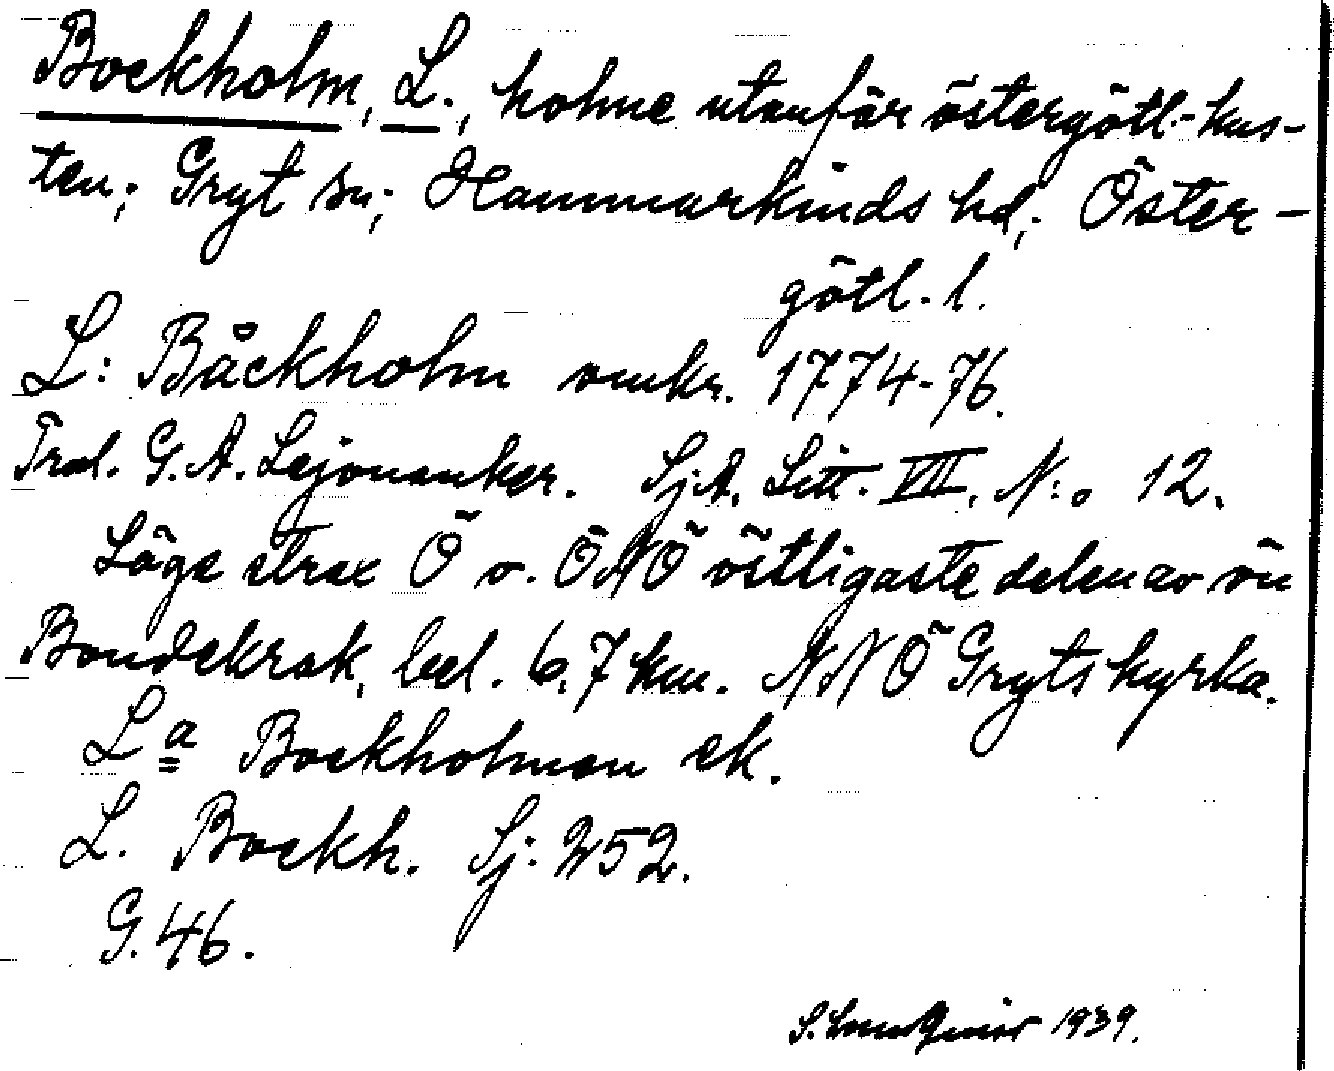 Bockholm, L., holme utanför östergötl.-kus-
ten; Gryt sn; Hammarkinds hd; Öster-
götl. l.
L: Båckholm omkr. 1774-76.
Trol. G. A. Lejonanker. SjA. Litt. VII. N:o 12.
Läge strax Ö o. ÖNÖ östligaste delen av ön
Bondekrok, bel. 6,7 km. NNÖ Gryts kyrka.
La Bockholmen ek.
L. Bockh. Sj: 252.
G. 46.
1939.